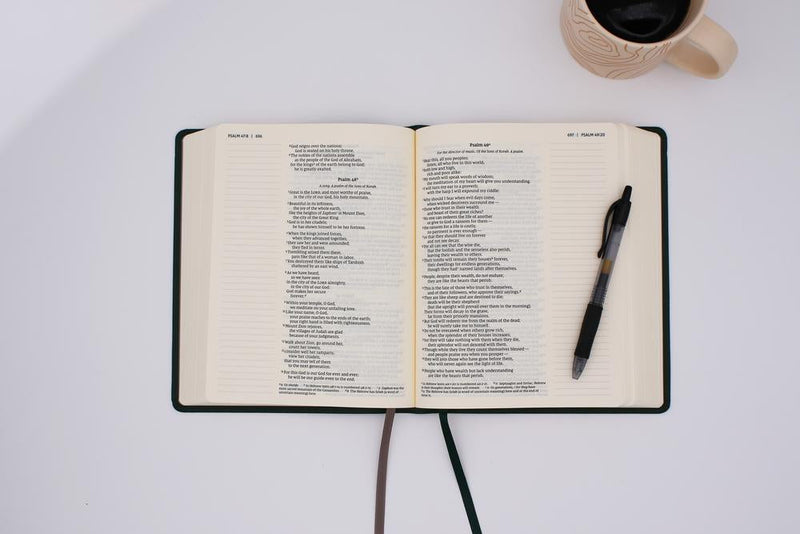 PSALM 47:8 | 696
⁸God reigns over the nations;
God is seated on his holy throne.
⁹The nobles of the nations assemble
as the people of the God of Abraham,
for the kings of the earth belong to God;
he is greatly exalted.
Psalm 48
A song. A psalm of the Sons of Korah.
¹Great is the LORD, and most worthy of praise,
in the city of our God, his holy mountain.
²Beautiful in its loftiness,
the joy of the whole earth,
like the heights of Zaphon is Mount Zion,
the city of the Great King.
³God is in her citadels;
he has shown himself to be her fortress.
⁴When the kings joined forces,
when they advanced together,
⁵they saw her and were astounded;
they fled in terror.
⁶Trembling seized them there,
pain like that of a woman in labor.
⁷You destroyed them like ships of Tarshish
shattered by an east wind.
⁸As we have heard,
so we have seen
in the city of the LORD Almighty,
in the city of our God:
God makes her secure
forever.
⁹Within your temple, O God,
we meditate on your unfailing love.
¹⁰Like your name, O God,
your praise reaches to the ends of the earth;
your right hand is filled with righteousness.
¹¹Mount Zion rejoices,
the villages of Judah are glad
because of your judgments.
¹²Walk about Zion, go around her,
count her towers,
¹³consider well her ramparts,
view her citadels,
that you may tell of them
to the next generation.
¹⁴For this God is our God for ever and ever;
he will be our guide even to the end.
697 | PSALM 49:20
Psalm 49
For the director of music. Of the Sons of Korah. A psalm.
¹Hear this, all you peoples;
listen, all who live in this world,
²both low and high,
rich and poor alike:
³My mouth will speak words of wisdom;
the meditation of my heart will give you understanding.
⁴I will turn my ear to a proverb;
with the harp I will expound my riddle:
⁵Why should I fear when evil days come,
when wicked deceivers surround me—
⁶those who trust in their wealth
and boast of their great riches?
⁷No one can redeem the life of another
or give to God a ransom for them—
⁸the ransom for a life is costly,
no payment is ever enough—
⁹so that they should live on forever
and not see decay.
¹⁰For all can see that the wise die,
that the foolish and the senseless also perish,
leaving their wealth to others.
¹¹Their tombs will remain their houses forever,
their dwellings for endless generations,
though they had named lands after themselves.
¹²People, despite their wealth, do not endure;
they are like the beasts that perish.
¹³This is the fate of those who trust in themselves,
and of their followers, who approve their sayings.
¹⁴They are like sheep and are destined to die;
death will be their shepherd
(but the upright will prevail over them in the morning).
Their forms will decay in the grave,
far from their princely mansions.
¹⁵But God will redeem me from the realm of the dead;
he will surely take me to himself.
¹⁶Do not be overawed when others grow rich,
when the splendor of their houses increases;
¹⁷for they will take nothing with them when they die,
their splendor will not descend with them.
¹⁸Though while they live they count themselves blessed—
and people praise you when you prosper—
¹⁹they will join those who have gone before them,
who will never again see the light of life.
²⁰People who have wealth but lack understanding
are like the beasts that perish.